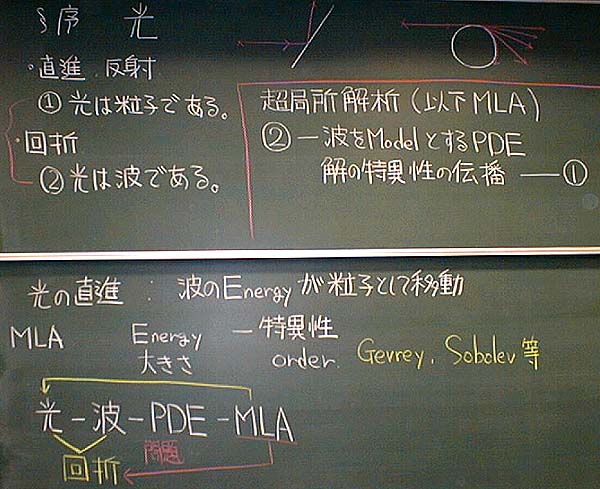 §序 光
・直進、反射
①光は粒子である。
・回折
②光は波である。
超局所解析(以下MLA)
②―波をModelとするPDE
解の特異性の伝播 ―①
光の直進 : 波のEnergyが粒子として移動
MLA Energy ― 特異性
大きさ order. Gevrey, Sobolev等
光-波-PDE-MLA
回折 問題